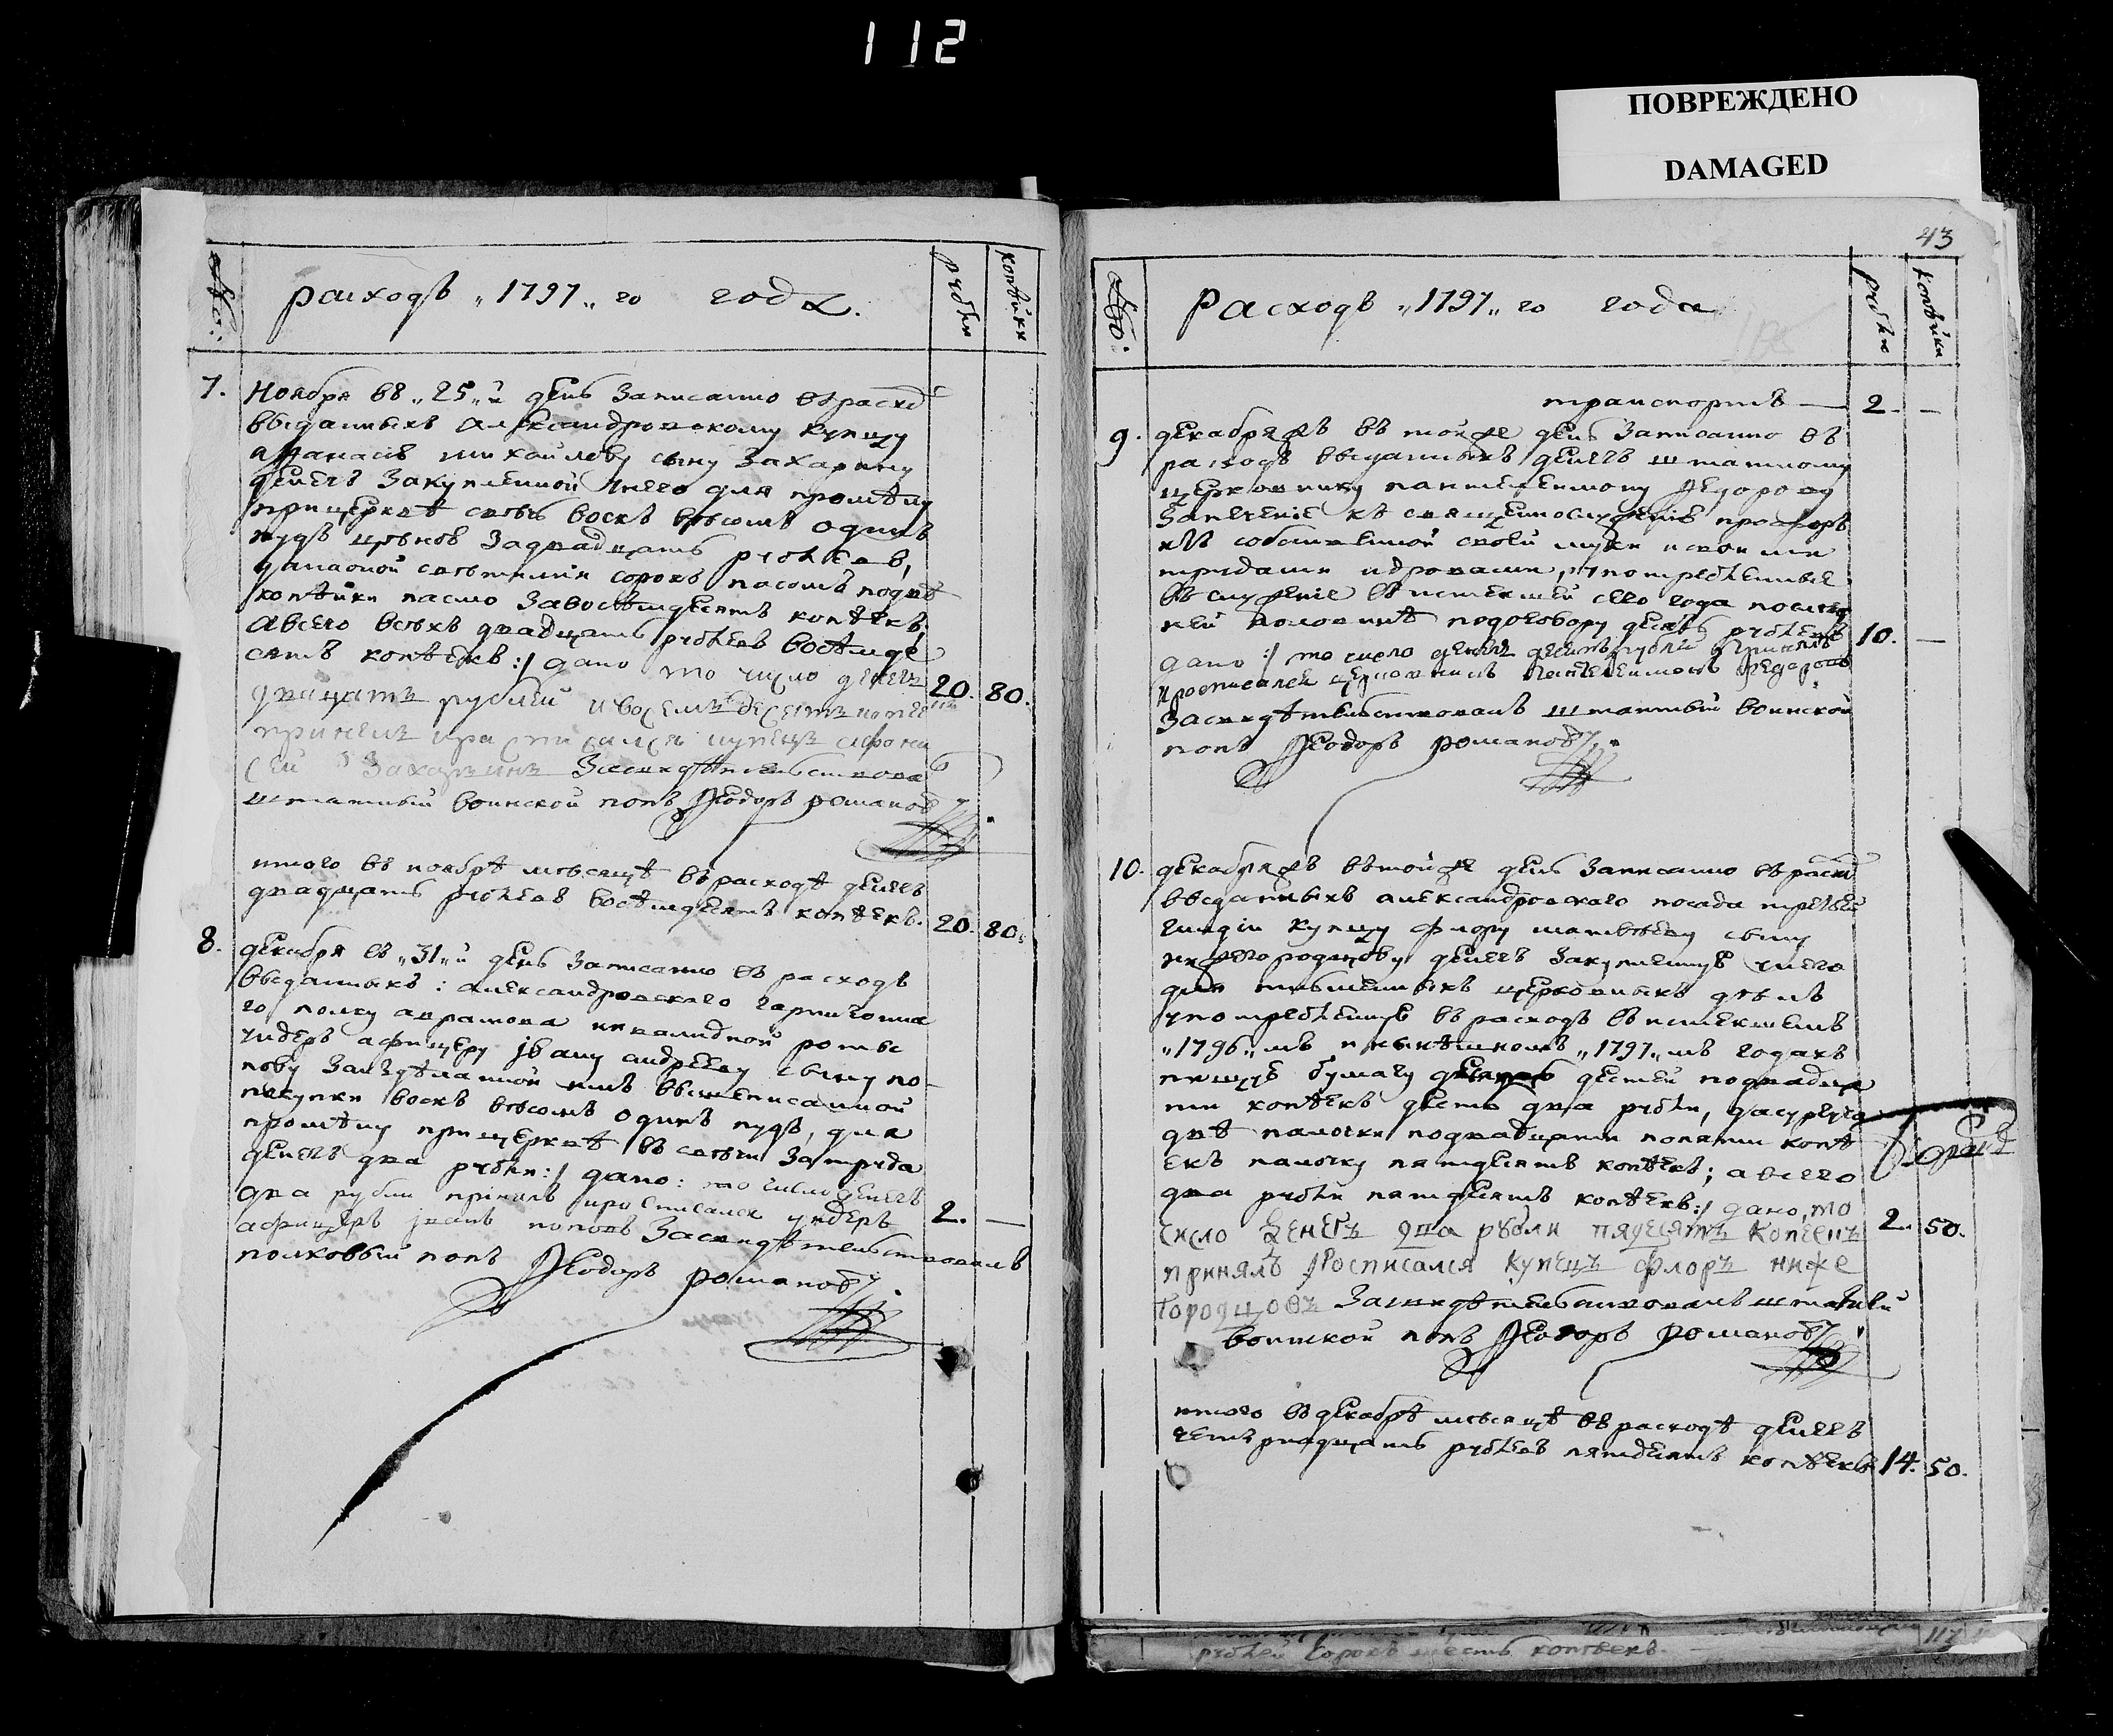 112
ПОВРЕЖДЕНО
DAMAGED
№:
расходъ „1797„ го года.
рубли
копѣйки
7.
Ноября въ „25„й день Записанно въ расхо
выданныхъ Александровскому купцу
афанасію михайлову сыну Захарьину
денегъ Закупленной унего для промѣну
прицеркви свѣчь воскъ вѣсомъ одинъ
пудъ цѣною Задвадцать рублевъ,
сорокъ пасомъ подвѣ
копѣйки пасмо Завосѣмдесятъ копѣекъ,
Авсего всѣхъ двадцать рублевъ восѣмде
сятъ копѣекъ:/ дано то число денегъ
20. 80.
двацать рублей и восемъ десетъ копее
принелъ ирасписался купецъ афона
сей Захарьинъ Засвидѣтельствова
штатный воинской попъ Ѳеодоръ романовъ
итого въ ноябрѣ мѣсяцѣ въ расходѣ денегъ
двадцать рублевъ восѣмдесятъ копѣекъ. 20. 80.
8.
декабря въ „31„й день Записанно въ расходъ
выданныхъ: александровскаго гарнизонна
го полку аврамова инвалидной роты
ундеръ афицеру Ивану андрееву сыну по-
пову Заиздѣланной имъ вышеписанной
покупки воскъ вѣсомъ одинъ пудъ, для
промѣну прицерквѣ въ свѣчи Затруда
денегъ два рубли:/ дано: то число денегъ
два рубли принялъ иросписался ундеръ 2. —
афицеръ иванъ поповъ Засвидѣтельствовалъ
полковый попъ Ѳеодоръ романовъ
43
№:
Расходъ „1797„ го года
рубли
копѣйки
транспортъ — 2. —
9.
декабряжъ въ тойже день Записанно въ
расходъ выданныхъ денегъ штатному
церковнику пантелеимону Ѳедорову
Запечение къ священнослужению просфоръ
изъ собственной своей муки исвоими
трудами идровами, употребленные
въ служение въ истекшей сего года послед
ней половинѣ подоговору десять рублевъ 10. —
дано:/ то число денегъ десять рубли принялъ
ироспписался церковникъ Пантелеимонъ Ѳедоровъ
Засвидѣтельствовалъ штатный воинской
попъ Ѳеодоръ романовъ
10.
декабряжъ вътойже день Записанно въ расхо
выданныхъ александровскаго посада третьей
гилдіи купцу флору матвѣеву сыну
нижегородцову денегъ Закупленную унего
для писменныхъ церковныхъ дѣлъ
употребленную въ расходъ въ истекшемъ
„1796„мъ и нынѣшномъ „1797„мъ годахъ
пищую бумагу десять дестей подвадца
ти копѣекъ десть два рубли, дасургуча
двѣ палочки подвадцати попяти копѣ
екъ палочку пятдесятъ копѣекъ; авсего
два рубли пятдесятъ копѣекъ:/ дано, то
число денегъ два рубли пядесятъ копеекъ 2. 50.
принялъ Росписался купецъ флоръ ниже
городцовъ Засвидѣтельствовалъ штатный
воинской попъ Ѳеодоръ Романовъ
итого въ декабрѣ мѣсяцѣ въ расходѣ денегъ
четырнадцать рублевъ пятдесятъ копѣекъ 14. 50.
рублей сорокъ шесть копѣекъ.